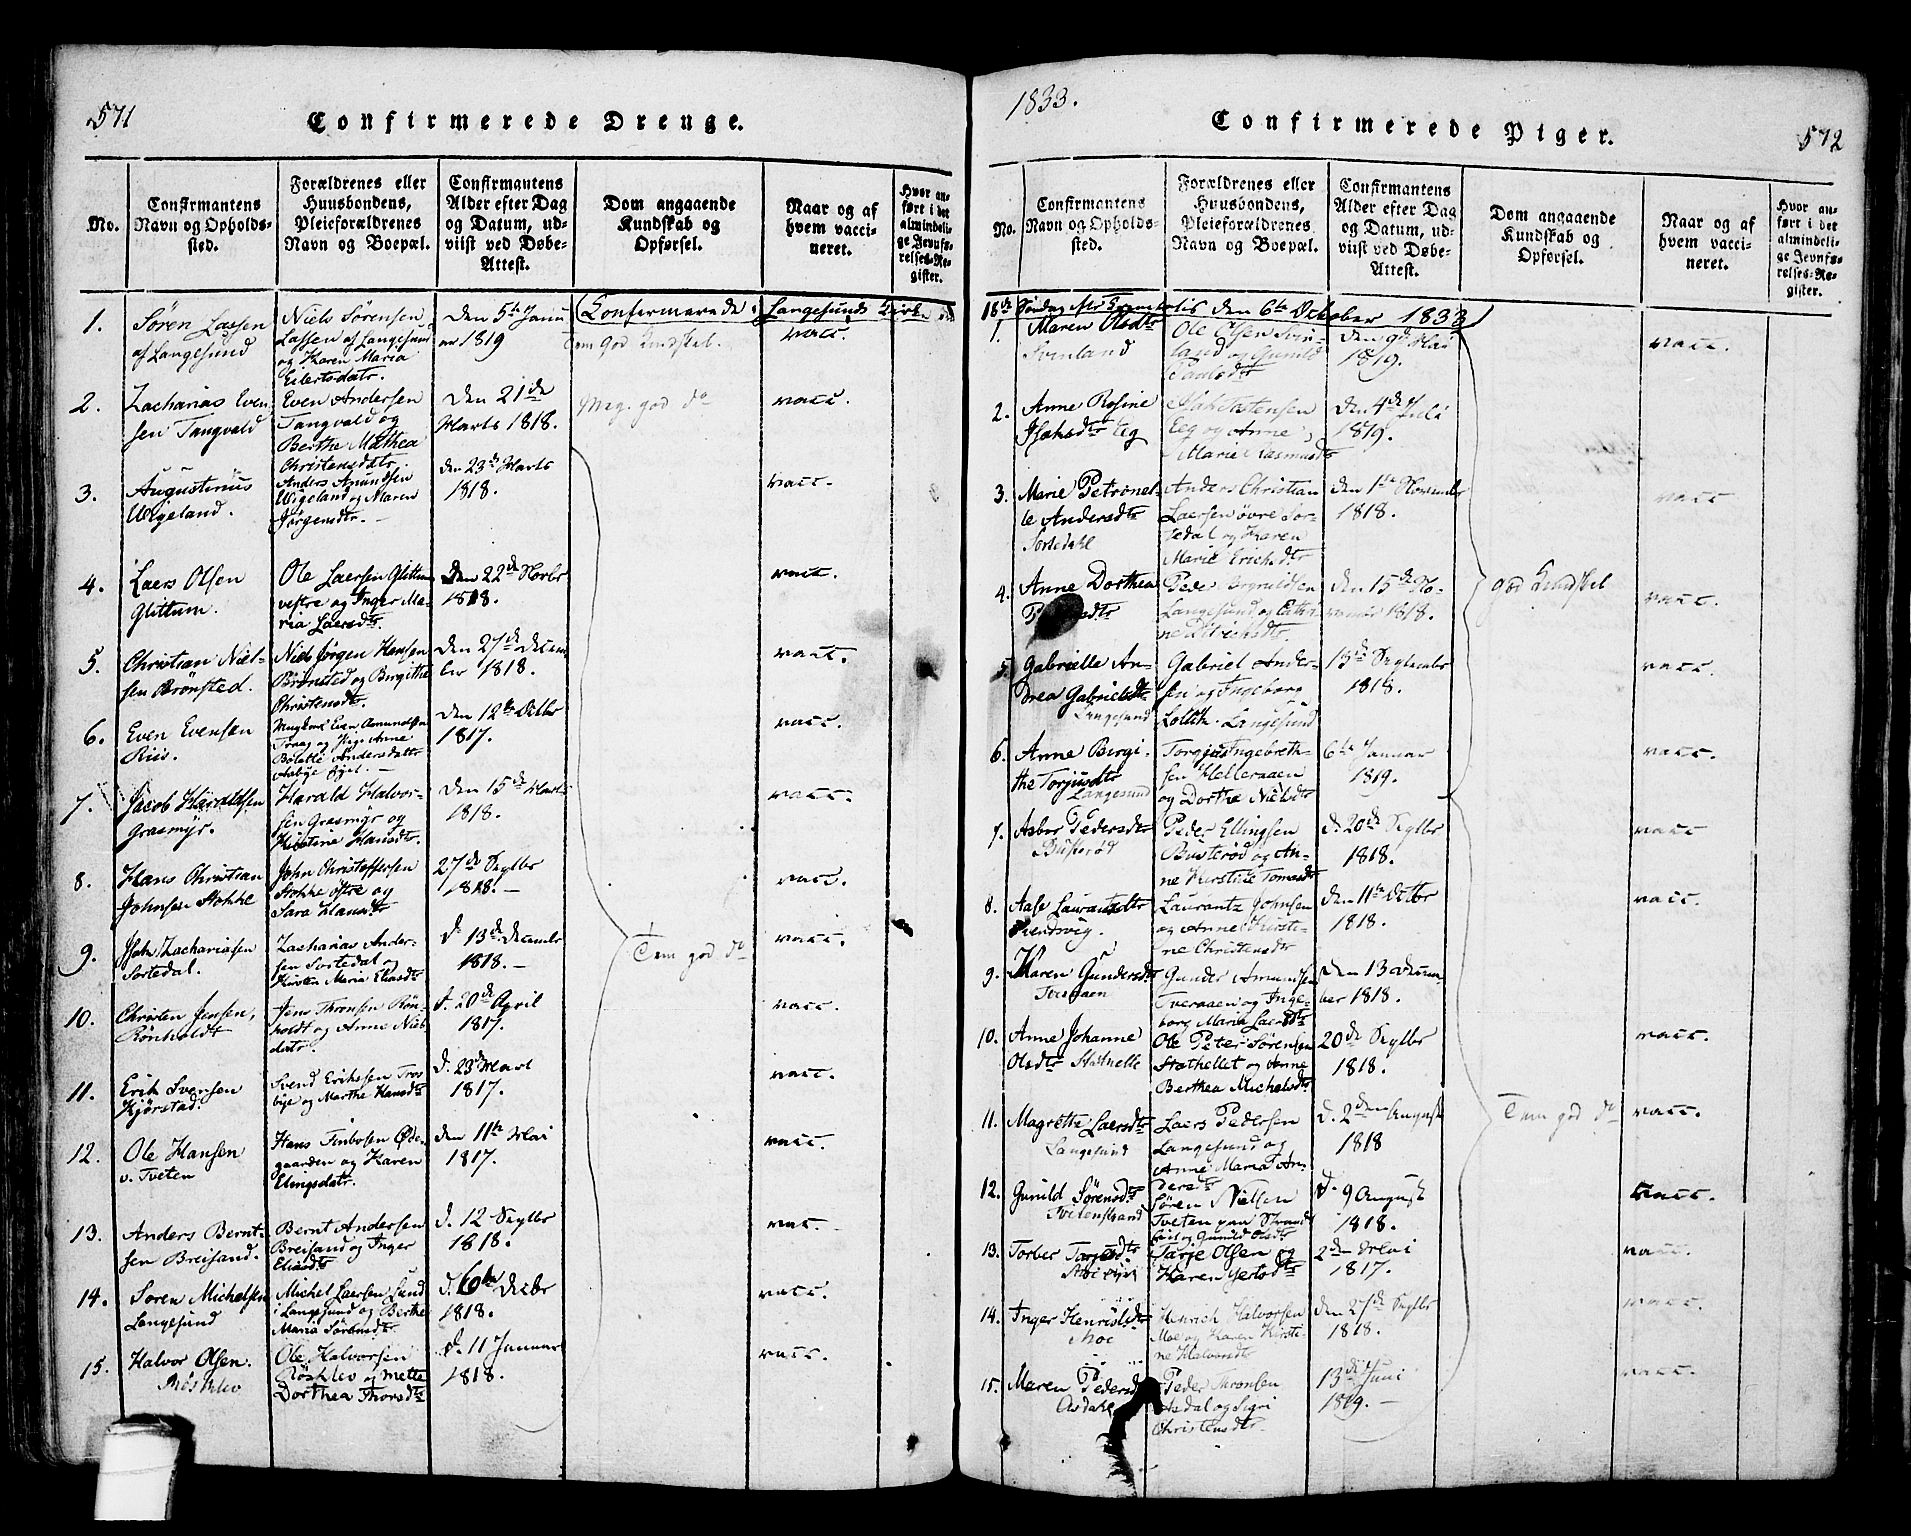 571
Confirmerede Drenge.
No.
Confirmantens
Navn og Opholds-
sted.
Forældrenes eller
Huusbondens,
Pleieforældrenes
Navn og Boepæl.
Confirmantens
Alder efter Dag
og Datum, ud-
viist ved Døbe-
Attest.
Dom angaaende
Kundskab og
Opførsel.
Naar og af
hvem vacci-
neret.
Hvor an-
ført i det
almindeli-
ge Jevnfø-
relses-Re-
gister.
Confermerede i Langesunds Kirke
1.
Søren Lassen
af Langesund
Niels Sørensen
Lassen af Langesund
og Karen Maria
Eilertsdatr.
Den 5te Janu
ar 1819
Tem God Kundskab.
vacc.
2.
Zacharias Even
sen Tangvald
Even Andersen
Tangvald og
Berthe Mathea
Christensdatr.
Den 21de
Marts 1818.
Meg. god do
vacc.
3.
Augustinus
Wigeland.
Anders Amundsen
Wigeland og Maren
Jørgensdtr. -
den 23de Marts
1818.
vacc.
4.
Laers Olsen
Glittum.
Ole Laersen Glittum
vestre og Inger Ma-
ria Laersdtr.
Den 22de Novbr
1818.
vacc.
5.
Christian Niel-
sen Brønsted.
Niels Jørgen Hansen
Brønsted og Birgithe
Christensdtr.
Den 27de Decem
ber 1818.
vacc.
6.
Even Evensen
Riis.
Even Amundsen
Traag og Anne
Andersdattr
Den 12te Octbr
1817.
vacc.
7.
Jacob Haraldsen
Grasmyr.
Harald Halvor-
sen Grasmyr og
Kirstine Hansdtr.
Den 15de Marts
1818.
vacc.
8.
Hans Christian
Johnsen Stokke
John Christoffersen
Stokke østre og
Sara Hansdtr
27de Septbr
1818. -
vacc.
9.
John Zachariasen
Sortedal.
Zacharias Ander-
sen Sortedal og
Kirsten Maria Eliasdtr
D. 13de December
1818. -
Tem god do
vacc.
10.
Christen Jensen,
Rönholdt
Jens Thronsen Rön-
holdt og Anne Niels
datr.
d. 20de April
1817.
vacc.
11.
Erik Svensen
Kjørstad.
Svend Eriksen Tros
bye og Marthe Hansdtr
D. 23de Mart
1817.
vacc.
12.
Ole Hansen
v. Tveten
Hans Øde-
gaarden og Karen
Elingsdatr.
den 11te Mai
1817.
vacc.
13.
Anders Bernt-
sen Breisand.
Bernt Andersen
Breisand og Inger
Eliasdtr
d. 12 Septbr
1818.
vac.
14.
Søren Michelsen
Langesund
Michel Laersen Sund
i Langesund og Berthe
Maria Sörensdtr
d. 6te Decbr
1818.
vacc.
15.
Halvor Olsen
Rösklev
Ole Halvorsen
Rösklev og Mette
Dorthea Thorsdtr
d. 11 Januar
1818.
vacc.
1833.
Confirmerede Piger.
572
No.
Confirmantens
Navn og Opholds-
sted.
Forældrenes eller
Huusbondens,
Pleieforældrenes
Navn og Boepæl.
Confirmantens
Alder efter Dag
og Datum, ud-
viist ved Døbe-
Attest.
Dom angaaende
Kundskab og
Opførsel.
Naar og af
hvem vacci-
neret.
Hvor an-
ført i det
almindeli-
ge Jevnfø-
relses-Re-
gister.
18de Søndag Trinitatis den 6te October 1833
1.
Maren Olsdtr
Svinland
Ole Olsen Svin-
land og Gunild
Paulsdtr
Den 9de Mai
1819.
vacc.
2.
Anne Rosine
Isaksdtr Eeg
Eeg og Anne
Marie Rasmusdtr
Den 4de Juli
1819.
vacc.
3.
Marie Petronel-
le Andersdtr
Sortedahl
Anders Christian
Laersen øvre Sor-
tedal og Karen
Marie Erichsdtr
den 1ste November
1818.
vacc
4.
Anne Dorthea
Peder
Langesund og Cathri
ne Ditrichsdtr.
den 15de No-
vember 1818.
god Kundskab
vacc.
5.
Gabrielle An-
drea Gabrielsdtr
Langesund
Gabriel Ander-
sen og Ingeborg
Langesund
13de Septembr
1818.
vacc.
6.
Anne Birgi-
the Torjusdtr
Langesund
Torgius Ingebreth-
sen Helleraaen
og Dorthe Nielsdtr
6te Januar
1819.
vacc.
7.
Asbor Pedersdtr
Busterød
Peder Ellingsen
Busterød og An-
ne Kirstine Tomasdtr
d. 20de Septbr
1818.
vacc
8.
Aase Laurantsdtr
Laurantz Johnsen
og Anne Kirsti-
ne Christensdtr
Den 11te Octbr
1818.
vacc.
9.
Karen Gundersdtr
Tveraaen
Gunder Amundsen
Tveraaen og Inge-
borg Maria Laersdtr
Den 13 Decem-
ber 1818.
vacc.
10.
Anne Johanne
Olsdtr Stathelle
Ole Peter Sörensen
Stathellet og Anne
Berthea Michelsdtr
20de Septbr
1818.
vacc.
11.
Magrethe Laersdtr
Langesund
Laers Pedersen
Langesund og
Anne Maria An-
dersdtr
d. 2den August
1818
Tem god do
vacc.
12.
Gunild Sörensdtr
Tvetenstrand
Søren Nielsen
Tveten paa Strand
og Gunild Olsdtr
d. 9 August
1818.
vacc.
13.
Torber Tarjesdtr
Tarje Olsen og
Karen Gertsdtr
2de Mai
1817.
vacc.
14.
Inger Henriksdtr
Moe
Henrich Halvorsen
Moe og Karen Kirsti-
ne Halvorsdtr
den 27de Septbr
1818.
vacc.
15.
Maren Pedersd
Asdahl
Peder Thronsen
Asdal og Sigri
Christensdtr.
13de Juni
1819. -
vacc.